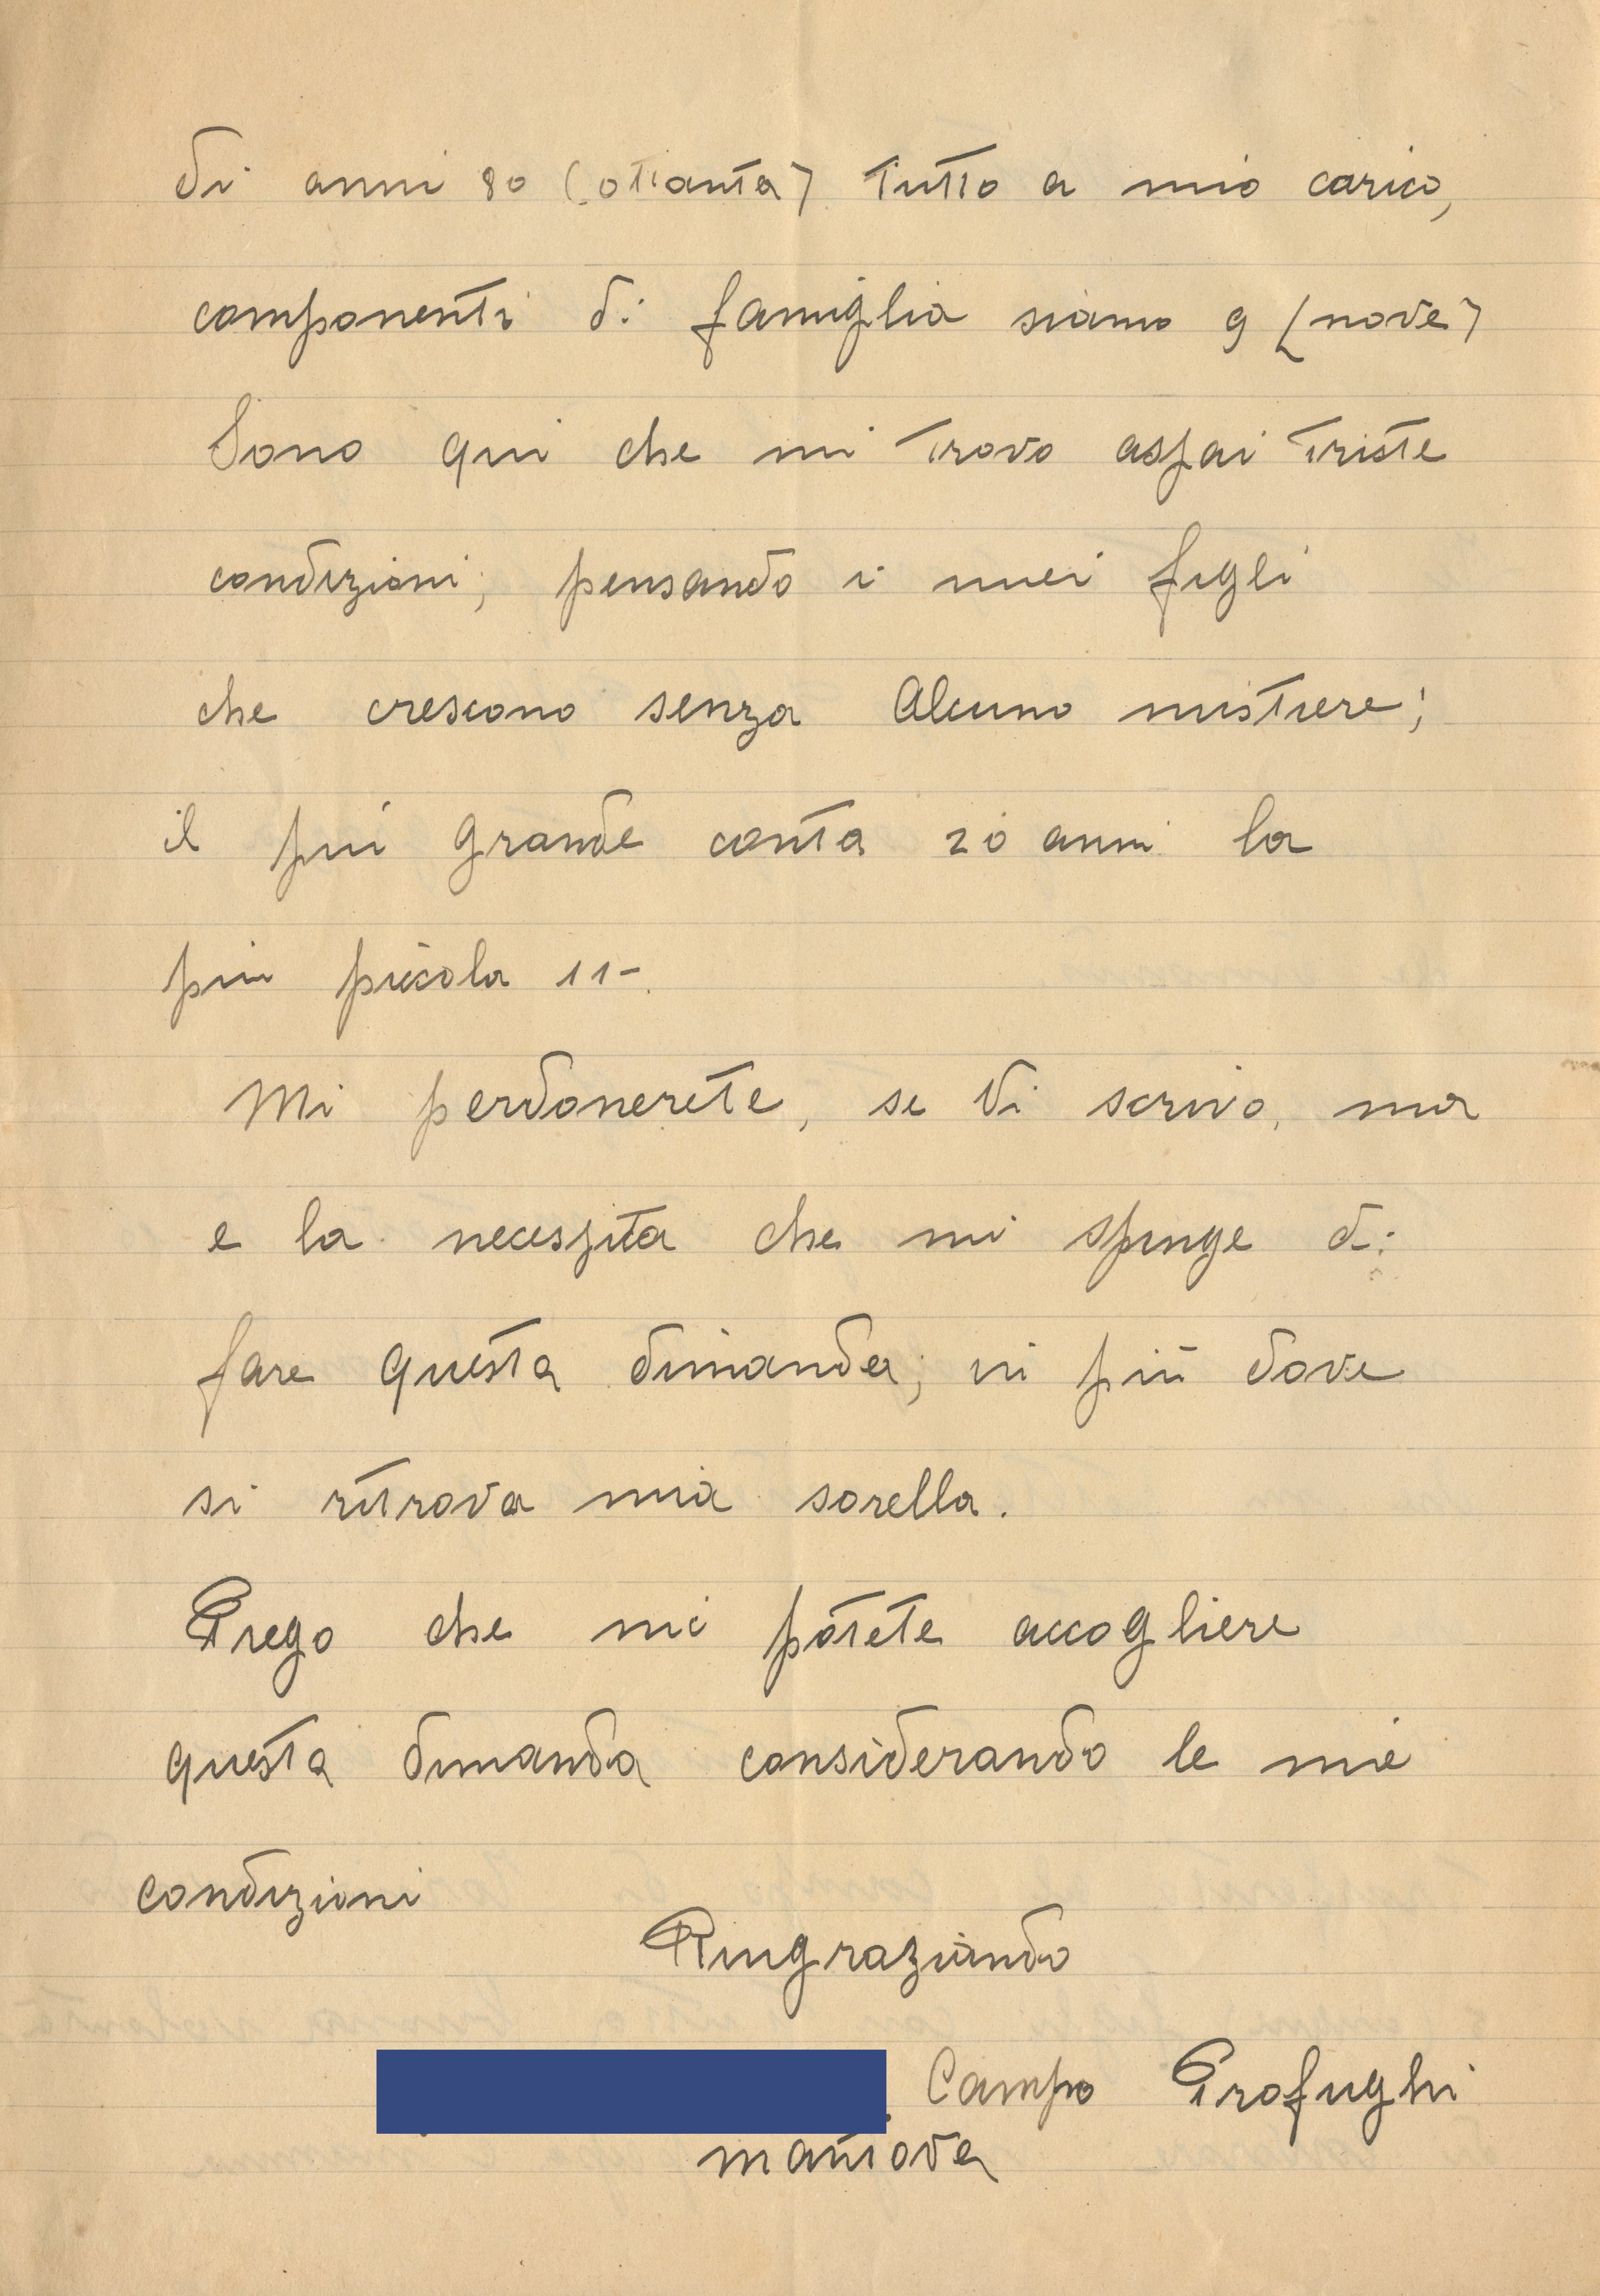 di anni 80 (ottanta) tutto a mio carico,
componenti di famiglia siamo 9 (nove)
Sono qui che mi trovo assai triste
condizioni, pensando i miei figli
che crescono senza Alcuno mistiere;
il piu grande conta 20 anni la
piu piccola 11-.
Mi perdonerete, se Vi scrivo, ma
e la necessita che mi spinge di
fare questa dimanda; in più dove
si ritrova mia sorella.
Prego che mi potete accogliere
questa dimanda considerando le mie
condizioni
Ringraziando
Campo Profughi
mantova